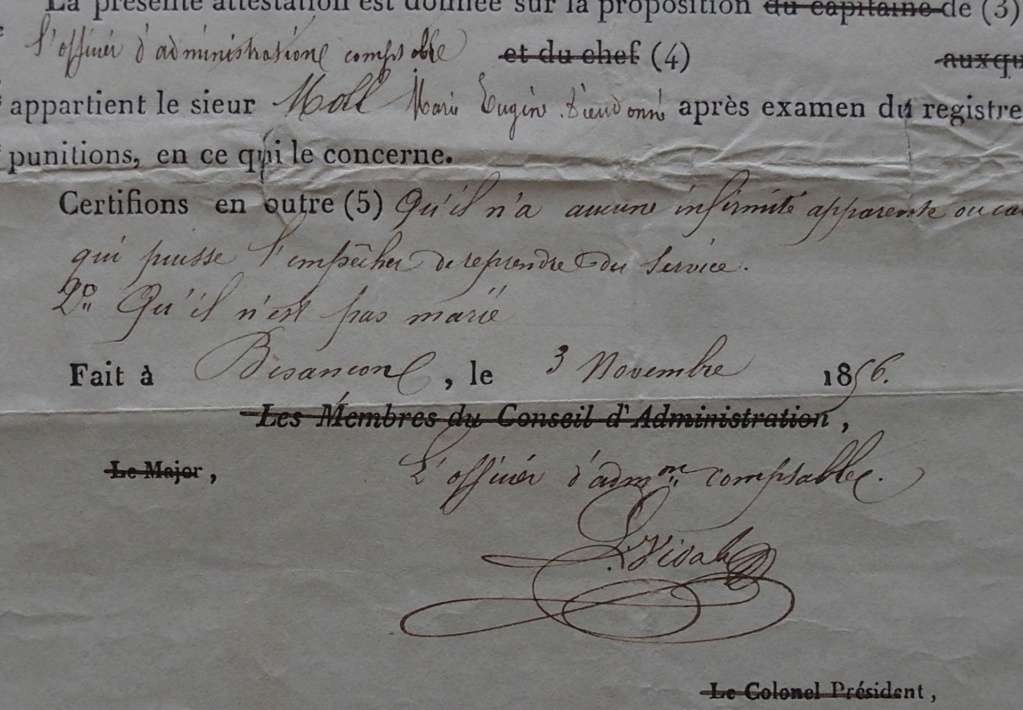 La présente attestation est donnée sur la proposition du capitaine de (3)
l'officier d'administration comptable et du chef (4) auxqu
appartient le sieur Moll Marie Eugène Dieudonné après examen du registre
punitions, en ce qui le concerne.
Certifions en outre (5) Qu'il n'a aucune infirmité apparente ou ca
qui puisse l'empêcher de reprendre du service.
2º Qu'il n'est pas marié
Fait à Besançon, le 3 Novembre 1856.
Les Membres du Conseil d'Administration,
Le Major, L'officier d'admon comptable.
Vidal
Le Colonel Président,